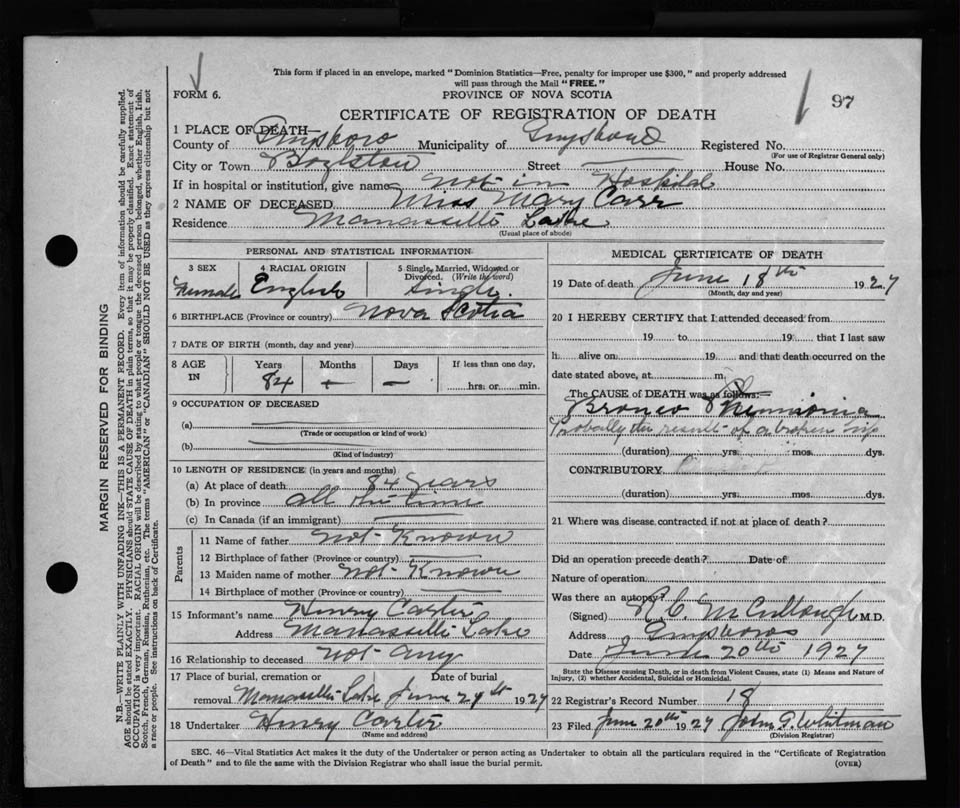 This form if placed in an envelope, marked "Dominion Statistics—Free, penalty for improper use $300," and properly addressed
will pass through the Mail "FREE."
FORM 6.
PROVINCE OF NOVA SCOTIA
97
CERTIFICATE OF REGISTRATION OF DEATH
1 PLACE OF DEATH—
County of Guysboro Municipality of Guysboro Registered No.
(For use of Registrar General only)
City or Town Boylston Street House No.
If in hospital or institution, give name Not in Hospital
2 NAME OF DECEASED Miss Mary Carr
Residence Manassette Lake
(Usual place of abode)
PERSONAL AND STATISTICAL INFORMATION
3 SEX 4 RACIAL ORIGIN 5 Single, Married, Widowed or Divorced. (Write the word)
Female English Single.
6 BIRTHPLACE (Province or country) Nova Scotia
7 DATE OF BIRTH (month, day and year)
8 AGE IN Years Months Days If less than one day,
84 — — hrs. or min.
9 OCCUPATION OF DECEASED
(a)
(Trade or occupation or kind of work)
(b)
(Kind of industry)
10 LENGTH OF RESIDENCE (in years and months)
(a) At place of death 84 years
(b) In province all the time
(c) In Canada (if an immigrant)
Parents
11 Name of father Not Known
12 Birthplace of father (Province or country)
13 Maiden name of mother Not Known
14 Birthplace of mother (Province or country)
15 Informant's name Henry Carter
Address Manassette Lake
16 Relationship to deceased not any
17 Place of burial, cremation or removal Date of burial
Manassette Lake June 1927
18 Undertaker Henry Carter
(Name and address)
MEDICAL CERTIFICATE OF DEATH
19 Date of death June 18th 1927
(Month, day and year)
20 I HEREBY CERTIFY that I attended deceased from
19 to 19 that I last saw
h alive on 19 and that death occurred on the
date stated above, at m.
The CAUSE OF DEATH was as follows:—
Bronco Pneumonia
Probably the result of a broken hip
(duration) yrs. mos. dys.
CONTRIBUTORY
(duration) yrs. mos. dys.
21 Where was disease contracted if not at place of death?
Did an operation precede death? Date of
Nature of operation
Was there an autopsy?
(Signed) R C McCullough M.D.
Address Guysboro
Date June 20th 1927
State the Disease causing Death, or in death from Violent Causes, state (1) Means and Nature of
Injury, (2) whether Accidental, Suicidal or Homicidal.
22 Registrar's Record Number 18
23 Filed June 20th 1927 John G. Whitman
(Division Registrar)
SEC. 46—Vital Statistics Act makes it the duty of the Undertaker or person acting as Undertaker to obtain all the particulars required in the "Certificate of Registration
of Death" and to file the same with the Division Registrar who shall issue the burial permit. (OVER)
MARGIN RESERVED FOR BINDING
N.B.—WRITE PLAINLY WITH UNFADING INK—THIS IS A PERMANENT RECORD. Every item of information should be carefully supplied.
AGE should be stated EXACTLY. PHYSICIANS should STATE CAUSE OF DEATH in plain terms, so that it may be properly classified. Exact statement of
OCCUPATION is very important. RACIAL ORIGIN will be described by stating to what people or tongue the deceased person belonged, whether English, Irish,
Scotch, French, German, Russian, Ruthenian, etc. The terms "AMERICAN" or "CANADIAN" SHOULD NOT BE USED as they express citizenship but not
a race or people. See instructions on back of Certificate.